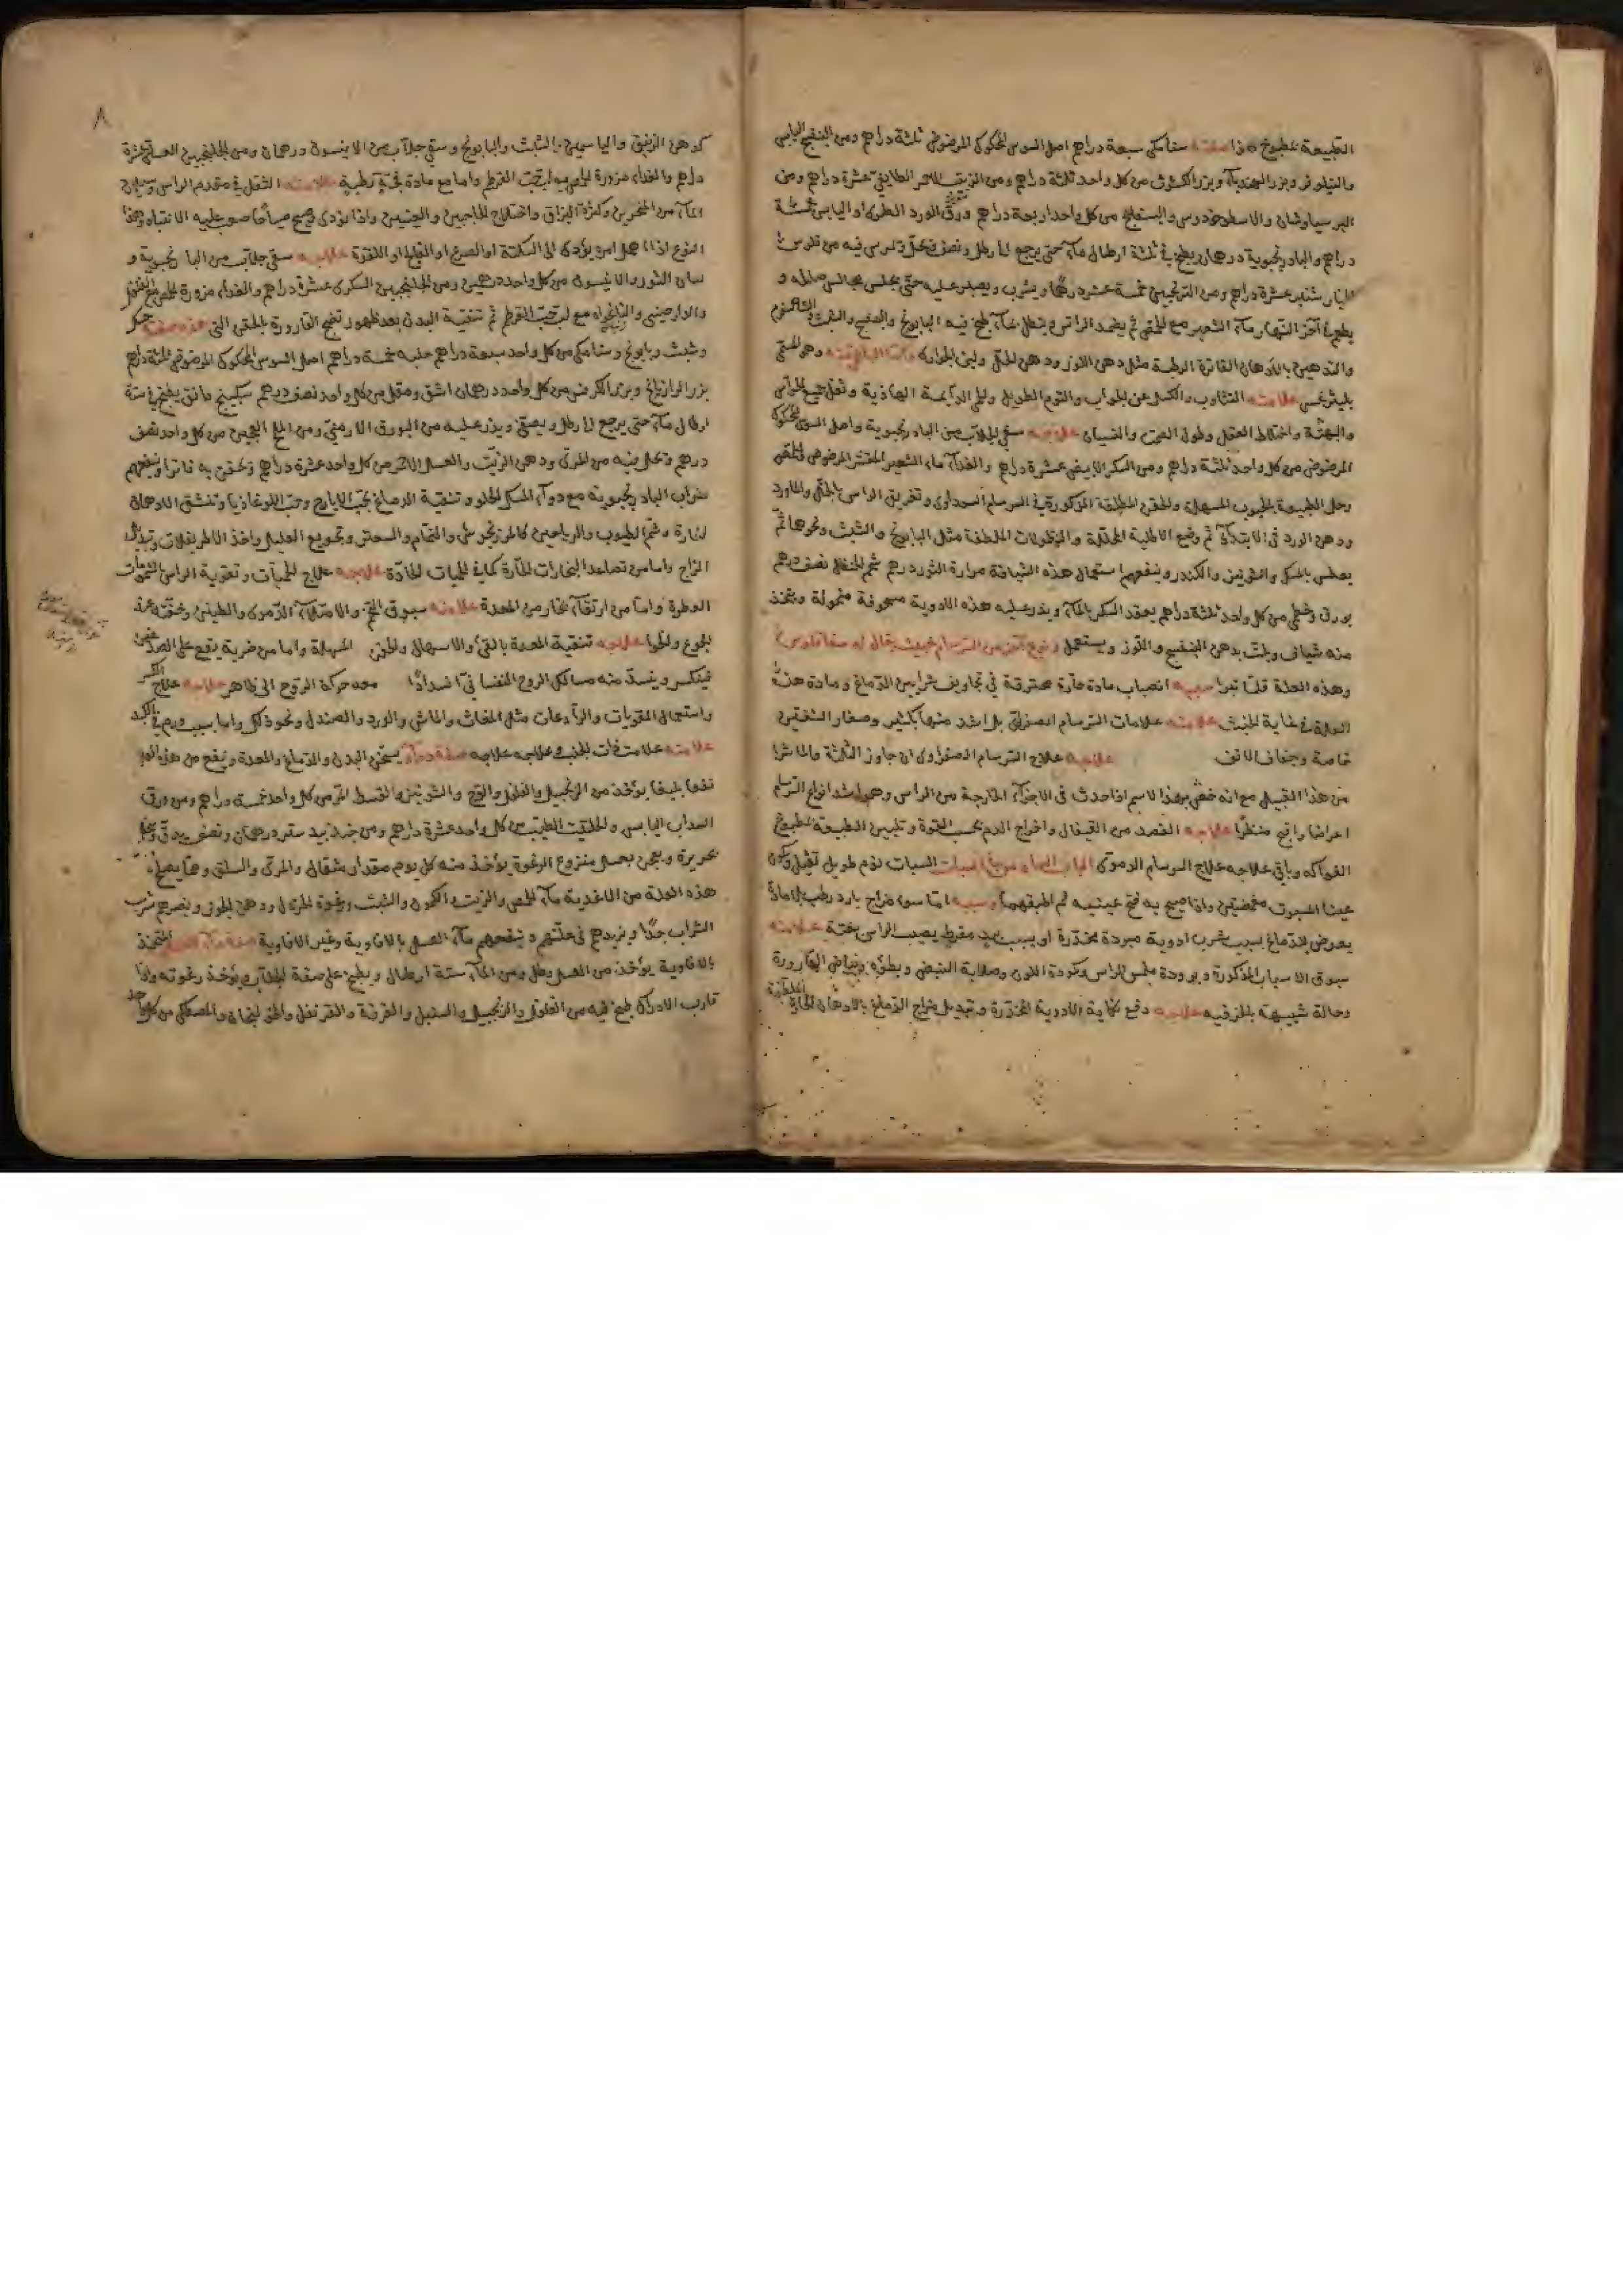 الطبيعة بمطبوخ هذا صفته سنا مكي سبعة دراهم اصل السوس المحكوك المرضوض ثلثة دراهم ومن البنفسج اليابس
والنيلوفر وبزر الهندبآء وبزر الكشوث من كل واحد ثلثة دراهم ومن الزبيب الاحمر الطايفي عشرة دراهم ومن
البرسياوشان والاسطوخودوس والبسفايج من كل واحد اربعة دراهم ورق الورد الطرى او اليابس ثلثة
دراهم والبادرنجبوية درهمان يطبخ في ثلثة ارطال مآء حتى يرجع الى رطل ونصف ويمرس فيه من فلوس
خيار شنبر عشرة دراهم ومن الترنجبين خمسة عشر درهمًا ويشرب ويصبر عليه حتى يجلس مجالس صالحه و
يطعم آخر النهار مآء الشعير ثم يضمد الراس وينطل بمآء طبخ فيه البابونج والبنفسج والشبث
والتدهين بالادهان الفاترة الرطبة مثل دهن اللوز ودهن الخلاف ولبن الجوارى وهو المسمى
بليثرغس علامته التثاوب والكسل عن الجواب والنوم الطويل والحمى الدآيمة الهاذية وثقل جميع الحواس
والبهتة واختلاط العقل وطول الصمت والنسيان علاجه سقي الجلاب من البادرنجبوية واصل السوس المحكوك
المرضوض من كل واحد ثلثة دراهم ومن السكر الابيض عشرة دراهم والغدآء مآء الشعير المقشر المرضوض
وحل الطبيعة بالحبوب المسهلة والحقن المطلقة المذكورة في السرسام السوداوى وتغريق الراس بالخل والماورد
ودهن الورد في الابتدآء ثم وضع الاطلية المحللة والنطولات الملطفة مثل البابونج والشبث ونحوها ثم
يعطس بالمسك والشونيز والكندر وينفعهم استعمال هذه الشيافة مرارة الثور درهم شحم الحنظل نصف درهم
بورق من كل واحد ثلثة دراهم يعقد السكر بالمآء ويذر عليه هذه الادوية مسحوقة منخولة ويتخذ
منه شياف ويلت بدهن البنفسج واللوز ويستعمل ونوع آخر من السرسام خبيث يقال له سقاقلوس
وهذه العلة قلّما تبرا سببه انصباب مادة حارة محترقة في تجاويف شرايين الدماغ ومادة هذه
العلة في غاية الخبث علامته علامات السرسام الصفراوى بل اشد منها بكثير وصغار الشفتين
خاصة وجفاف الانف علاجه علاج السرسام الصفراوى ان جاوز الثلثة والماشرا
من هذا القبيل مع انه خص بهذا الاسم اذا حدث في الاجزآء الخارجة من الراس وهو اشد انواع السرسام
اعراضا واقبح منظرًا علاجه الفصد من القيفال واخراج الدم بحسب القوة وتليين الطبيعة بمطبوخ
الفواكه وباقي علاجه علاج السرسام الدموى السبات نوم طويل ثقيل وتكون
عينا المسبوت مغمضتين واذا صيح به فتح عينيه ثم اطبقهما وسببه امّا سوء مزاج بارد رطب بلا مادة
يعرض للدماغ بسبب شرب ادوية مبردة مخدّرة او بسبب برد مفرط يصيب الراس بغتة علامته
سبوق الاسباب المذكورة وبرودة ملمس الراس وكمودة اللون وصلابة النبض وبطؤه وبياض القارورة
وحالة شبيهة بالخرف علاجه دفع نكاية الادوية المخدّرة وتبديل مزاج الدماغ بالادهان الحارة
٨
كدهن الزنبق والياسمين والشبث والبابونج وسقي جلاب من الانيسون درهمان ومن الجلنجبين العسلي عشرة
دراهم والغداء مزورة الحمص بلب حب القرطم واما مع مادة رطبة علامته الثقل في مقدم الراس وسيلان
المآء من المنخرين وكثرة البزاق واختلاج الحاجبين والعينين واذا نودى وصيح صياحا صعب عليه الانتباه وهذا
النوع اذا اهمل امره يؤدى الى السكتة او الصرع او الفالج او اللقوة علاجه سقي جلاب من البادرنجبوية و
لسان الثور والانيسون من كل واحد درهمين ومن الجلنجبين السكرى عشرة دراهم والغداء مزورة الحمص
والدارصيني والنانخواه مع لب حب القرطم ثم تنقية البدن بعد ظهور نضج القارورة بالحقن التي هذه صفتها
وشبث وبابونج وسنا مكي من كل واحد سبعة دراهم حلبه خمسة دراهم اصل السوس المحكوك المرضوض ثلثة دراهم
بزر الرازيانج وبزر الكرفس من كل واحد درهمان اشق ومقل من كل واحد نصف درهم سكبينج دانق يطبخ في ستة
ارطال مآء حتى يرجع الى رطل ويصفى ويذر عليه من البورق الارمني ومن الملح العجين من كل واحد نصف
درهم ويحل فيه من المرى ودهن الزيت والعسل الاحمر من كل واحد عشرة دراهم ويحقن به فاترا وينفعهم
شراب البادرنجبوية مع دوآء المسك الحلو وتنقية الدماغ بحب الايارج وحب اللوغاذيا وتنشق الادهان
الحارة وشم الطيوب والرياحين كالمرزنجوش والنمام والسعتر وتجويع العليل واخذ الاطريفلات وتبديل
المزاج واما من تصاعد البخارات الحارة كما في الحميات الحادّة علاجه علاج الحميات وتقوية الراس بالشمومات
العطرة وامّا من ارتقآء بخار من المعدة علامته سبوق التخم والامتلآء الدموى والطنين وخفته عند
الجوع والخوا علاجه تنقية المعدة بالقئ والاسهال والحقن المسهلة واما من ضربة يقع على الصدغين
فينكسر وينسدّ منه مسالك الروح النفسانى انسدادًا معه حركة الروح الى ظاهر علاجه علاج الكسر
واستعمال المقويات والرادعات مثل المغاث والماش والورد والصندل ونحو ذلك واما بسبب ورم في الكبد
علامته علامت ذات الجنب وعلاجه علاجه صفة دوآء يسخن البدن والدماغ والمعدة وينفع من هذه العلة
نفعا بليغا يؤخذ من الزنجبيل والفلفل والوج والشونيز والقسط المر من كل واحد خمسة دراهم ومن ورق
السداب اليابس والحلتيت الطيب من كل واحد عشرة دراهم ومن جندبيدستر درهمان ونصف يدق وينخل
بحريرة ويعجن بعسل منزوع الرغوة يؤخذ منه كل يوم مقدار مثقال والمرى والسلق وممّا يصلح في
هذه العلة من الاغذية مآء الحمص والزيت والكمون والشبث ورغوة الخردل ودهن الجوز ويضرهم شرب
الشراب جدًّا ويزيدهم في علتهم وينفعهم مآء العسل بالافاوية وغير الافاوية صفة مآء العسل المتخذ
بالافاوية يؤخذ من العسل رطل ومن المآء ستة ارطال ويطبخ على صفة الجلاب ويؤخذ رغوته واذا
قارب الادراك طبخ فيه من الفلفل والزنجبيل والسنبل والقرفة والقرنفل والخولنجان والمصطكى من كل واحد